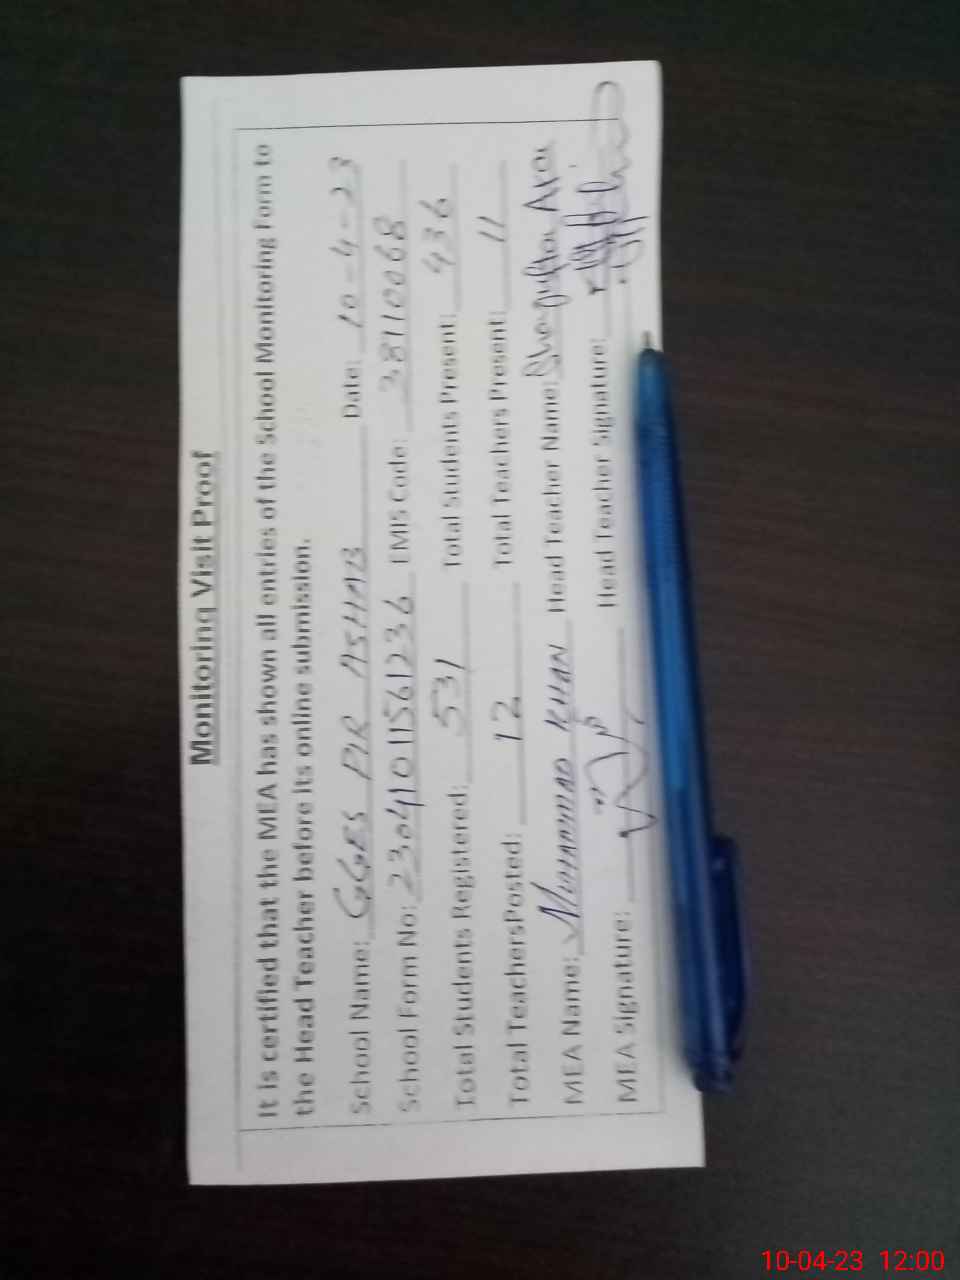 Monitoring Visit Proof
It is certified that the MEA has shown all entries of the School Monitoring Form to
the Head Teacher before its online submission.
School Name: GGES PIR ASHAB Date: 10-4-23
School Form No: 23041011561236 EMIS Code: 38110068
Total Students Registered: 531 Total Students Present: 436
Total TeachersPosted: 12 Total Teachers Present: 11
MEA Name: MUHAMMAD KHAN Head Teacher Name: Shagufta Ara
MEA Signature: Head Teacher Signature:
10-04-23 12:00